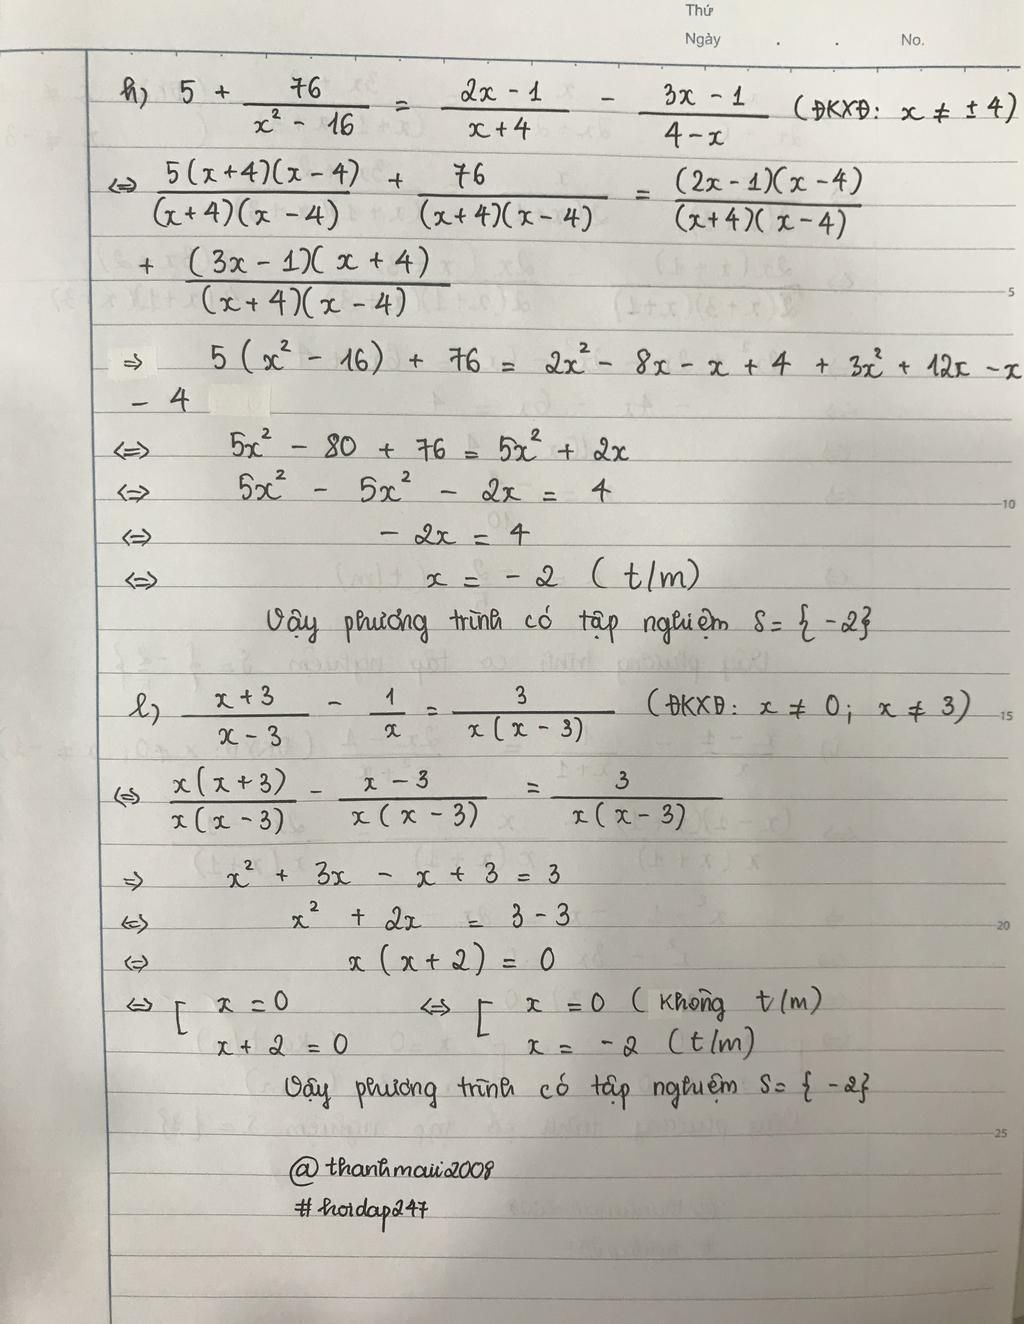 Thứ
Ngày . . No.
h) 5 + 76/(x² - 16) = (2x - 1)/(x + 4) - (3x - 1)/(4 - x) (ĐKXĐ: x ≠ ± 4)
⇔ 5(x + 4)(x - 4)/(x + 4)(x - 4) + 76/(x + 4)(x - 4) = (2x - 1)(x - 4)/(x + 4)(x - 4)
+ (3x - 1)(x + 4)/(x + 4)(x - 4)
5
⇒ 5(x² - 16) + 76 = 2x² - 8x - x + 4 + 3x² + 12x - x
- 4
⇔ 5x² - 80 + 76 = 5x² + 2x
⇔ 5x² - 5x² - 2x = 4
10
⇔ - 2x = 4
⇔ x = - 2 (t/m)
Vậy phương trình có tập nghiệm S = { -2}
l) (x + 3)/(x - 3) - 1/x = 3/x(x - 3) (ĐKXĐ: x ≠ 0; x ≠ 3)
15
⇔ x(x + 3)/x(x - 3) - (x - 3)/x(x - 3) = 3/x(x - 3)
⇒ x² + 3x - x + 3 = 3
⇔ x² + 2x = 3 - 3
20
⇔ x(x + 2) = 0
⇔ [ x = 0 ⇔ [ x = 0 (Không t/m)
x + 2 = 0 x = - 2 (t/m)
Vậy phương trình có tập nghiệm S = { -2}
25
@thanhmaii2008
#hoidap247